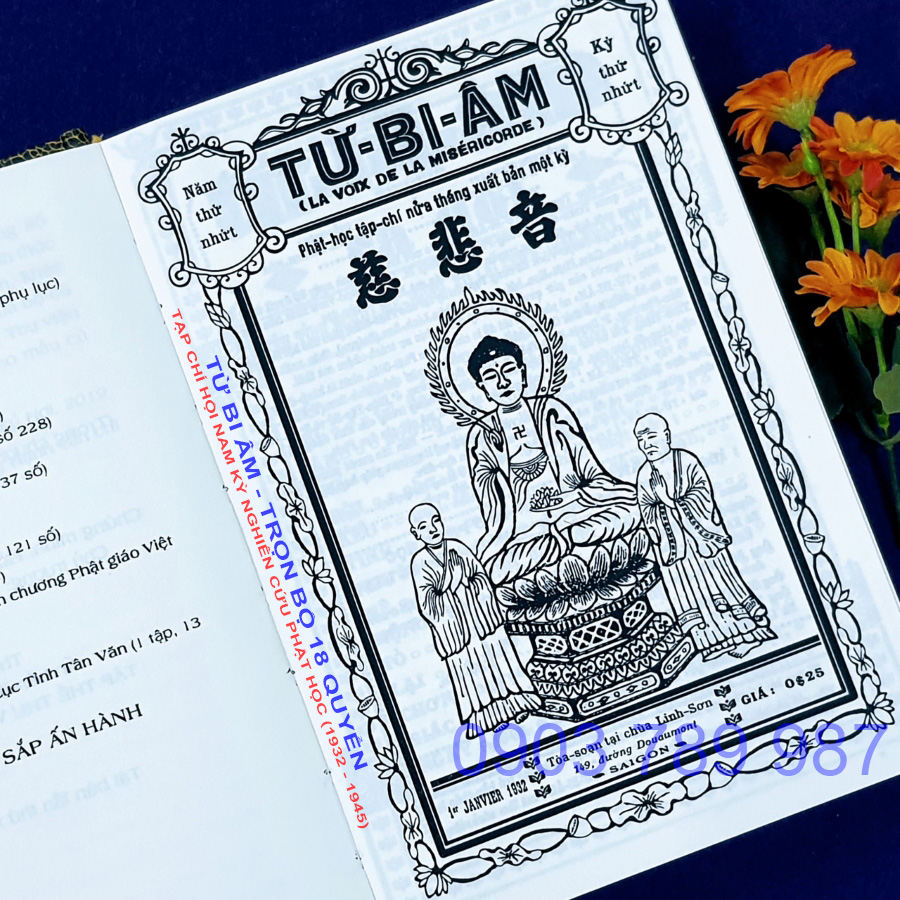 phụ lục)
số 228)
37 số)
121 số)
chương Phật giáo Việt
Lục Tỉnh Tân Văn (1 tập, 13
SẮP ẤN HÀNH
Năm
thứ
nhứt
Kỳ
thứ
nhứt
TỪ-BI-ÂM
(LA VOIX DE LA MISÉRICORDE)
Phật-học tập-chí nửa tháng xuất bản một kỳ
慈悲音
卍
TỪ BI ÂM - TRỌN BỘ 18 QUYỂN
TẠP CHÍ HỘI NAM KỲ NGHIÊN CỨU PHẬT HỌC (1932 - 1945)
1er JANVIER 1932
Tòa-soạn tại chùa Linh-Sơn
149, đường Douaumont
SAIGON
GIÁ: 0$25
0903 789 987